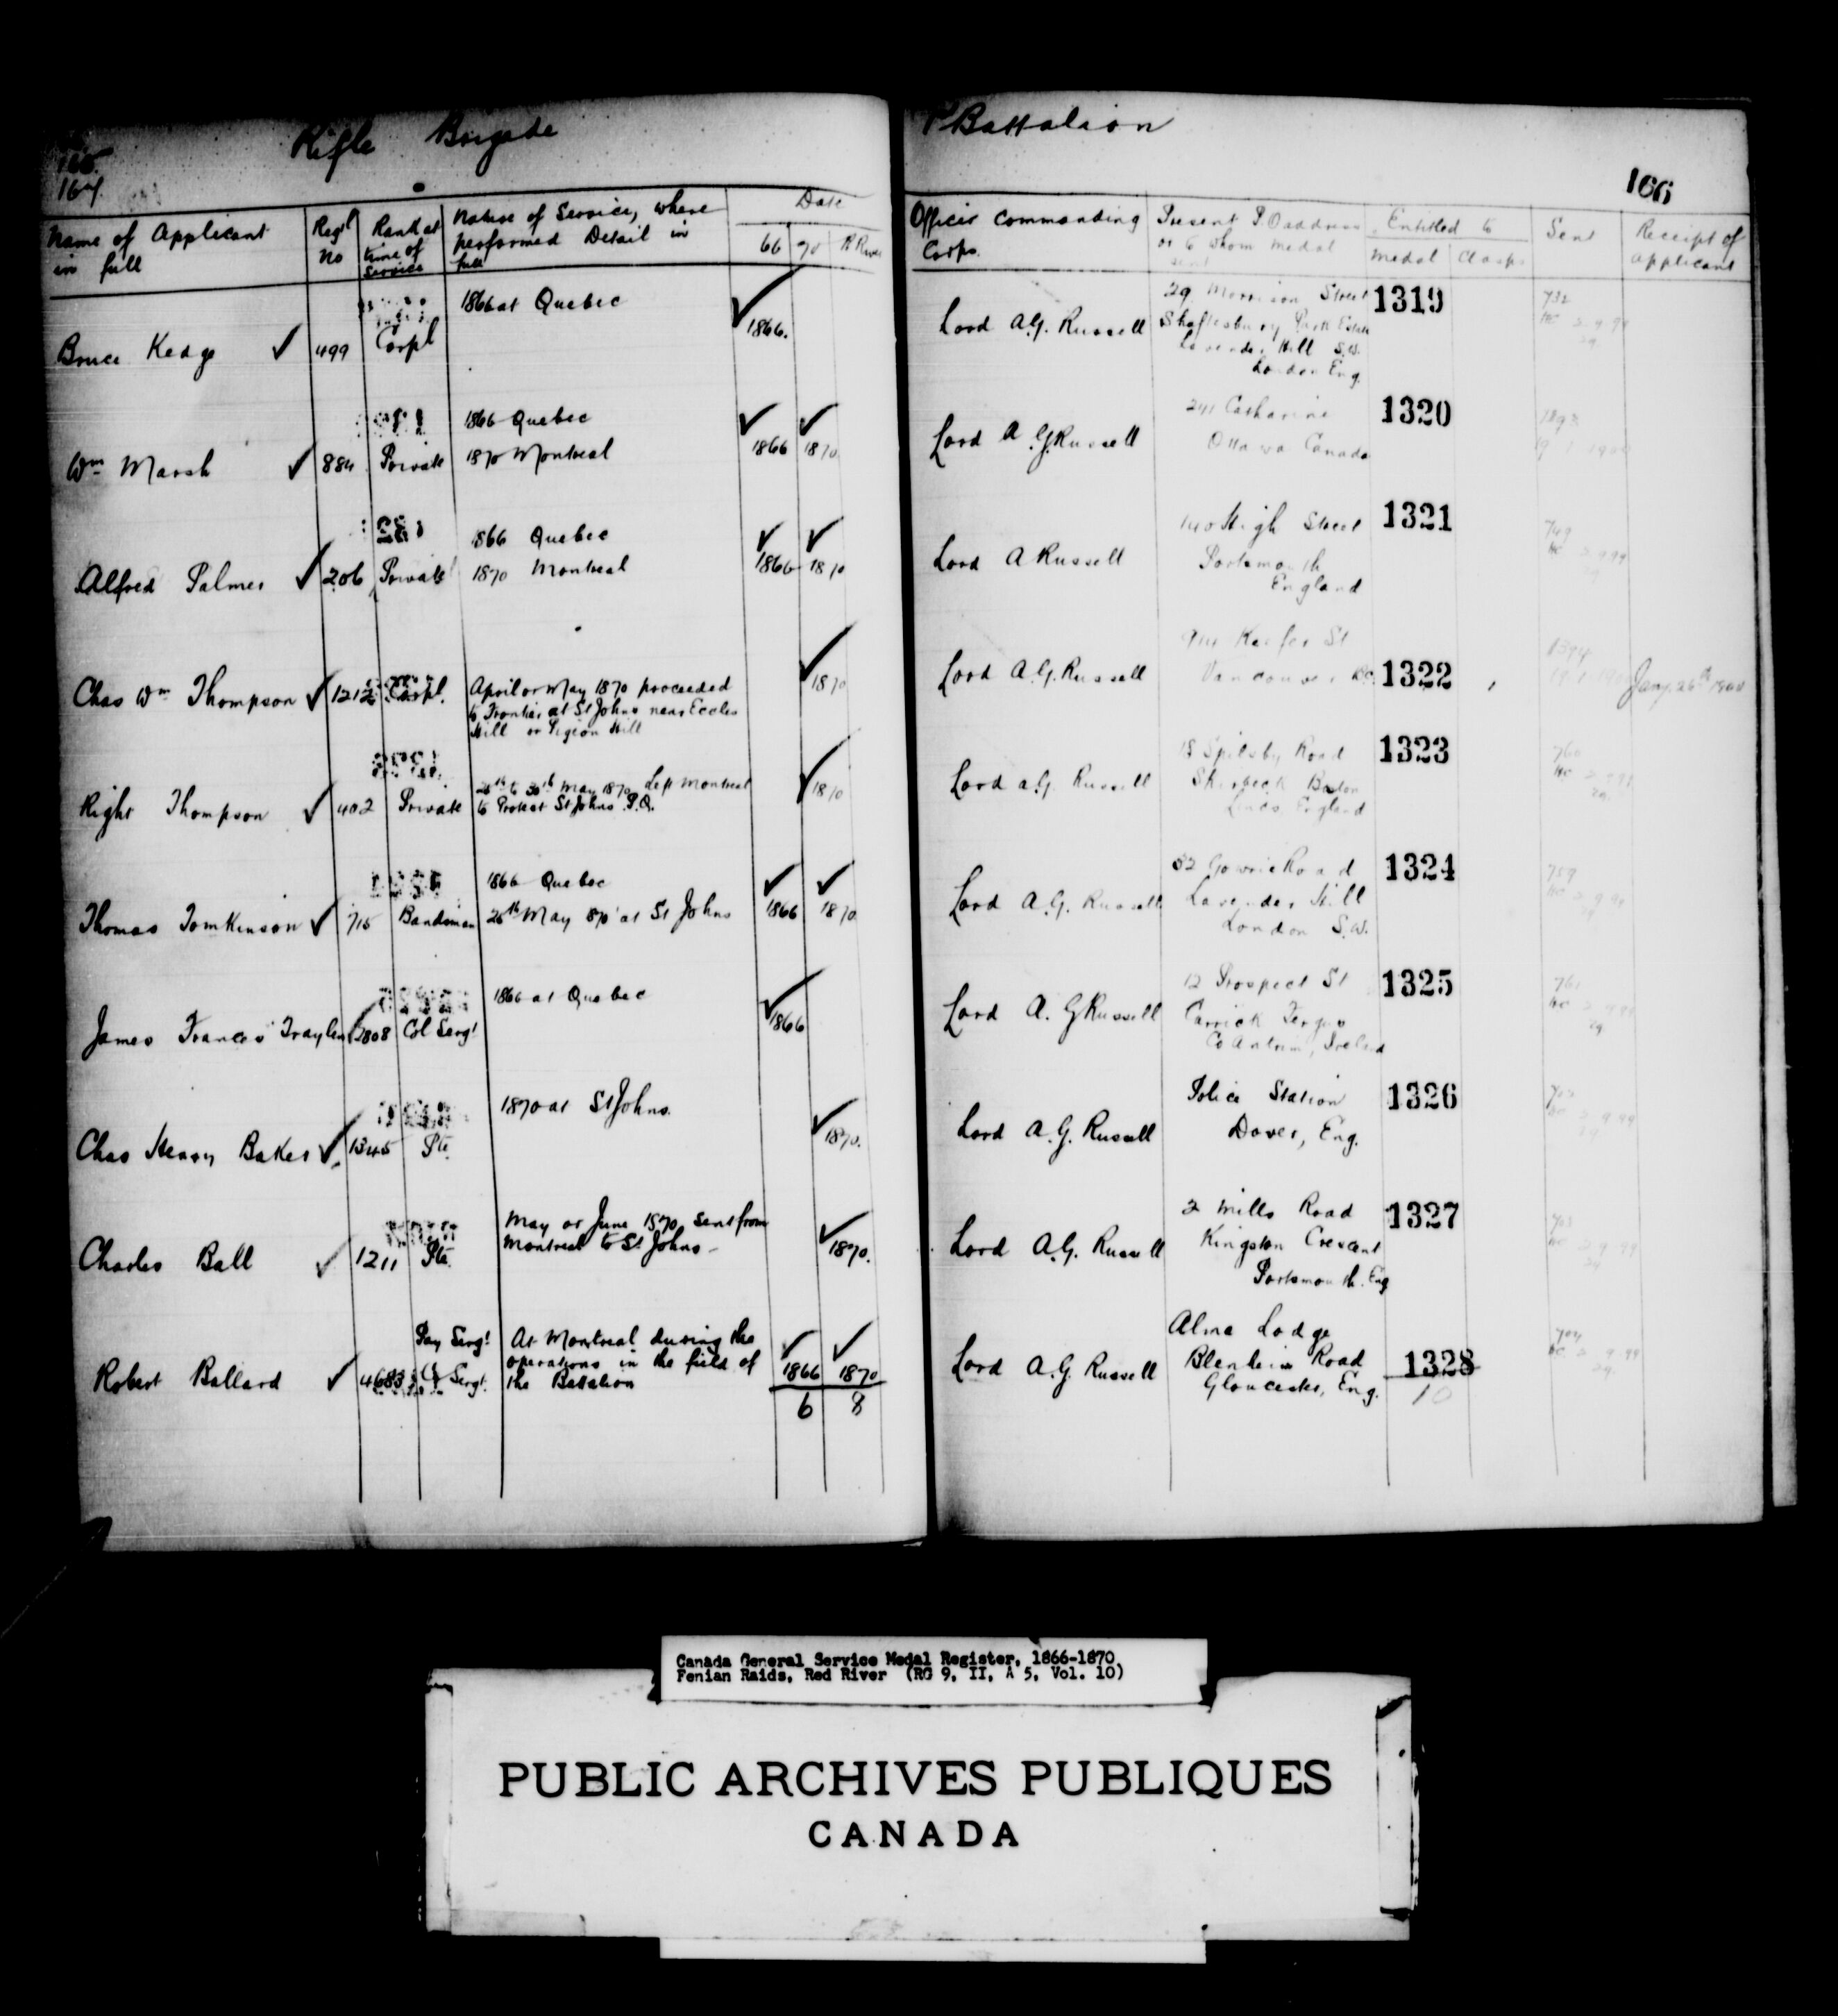 Rifle Brigade
Battalion
164
166
Name of Applicant in full
Regtl No
Rank at time of Service
Nature of Service, where performed Detail in full
Date
66 70 R River
Officer Commanding Corps.
Present P.O address or to whom medal sent
Entitled to
Medal Clasp
Sent
Receipt of Applicant
Bruce Kedge 499 Corpl 1866 at Quebec 1866.
Lord A.G. Russell
29 Morrison Street
Shaftesbury Park Estate
Lavender Hill S.W.
London Eng.
1319
Wm Marsh 884 Private
1866 Quebec
1870 Montreal
1866 1870
Lord A G Russell
Catharine
Ottawa Canada
1320
Alfred Palmer 206 Private
1866 Quebec
1870 Montreal
1866 1870
Lord A Russell
140 High Street
Portsmouth
England
1321
Chas Wm Thompson 1212 Corpl.
April or May 1870 proceeded
to Frontier at St Johns near Eccles
Hill or Pigeon Hill
1870
Lord A.G. Russell
Keefer St
Vancouver B.C.
1322
Jany. 26th 1900
Right Thompson 402 Private
26th to 30th May 1870 Left Montreal
to Protect St Johns P.Q.
1870
Lord A.G. Russell
18 Spilsby Road
Skirbeck Boston
Lincs, England
1323
Thomas Tomkinson 715 Bandsman
1866 Quebec
26th May 870 at St Johns
1866 1870
Lord A.G. Russell
52 Gowrie Road
Lavender Hill
London S.W.
1324
James Francis 2808 Col Sergt
1866 at Quebec
1866
Lord A. G Russell
12 Prospect St
Carrick Fergus
Co Antrim, Ireland
1325
Chas Henry Baker 1345 Pte.
1870 at St Johns.
1870.
Lord A.G. Russell
Police Station
Dover, Eng.
1326
Charles Ball 1211 Pte.
May or June 1870, sent from
Montreal to St Johns -
1870.
Lord A.G. Russell
2 Mills Road
Kingston Crescent
Portsmouth. Eng
1327
Robert Ballard 4683 Pay Sergt
Sergt.
At Montreal during the
operations in the field of
the Battalion
1866 1870
Lord A.G. Russell
Alma Lodge
Blenheim Road
Gloucester, Eng.
1328
6 8
10
Canada General Service Medal Register, 1866-1870
Fenian Raids, Red River (RG 9, II, A 5, Vol. 10)
PUBLIC ARCHIVES PUBLIQUES
CANADA